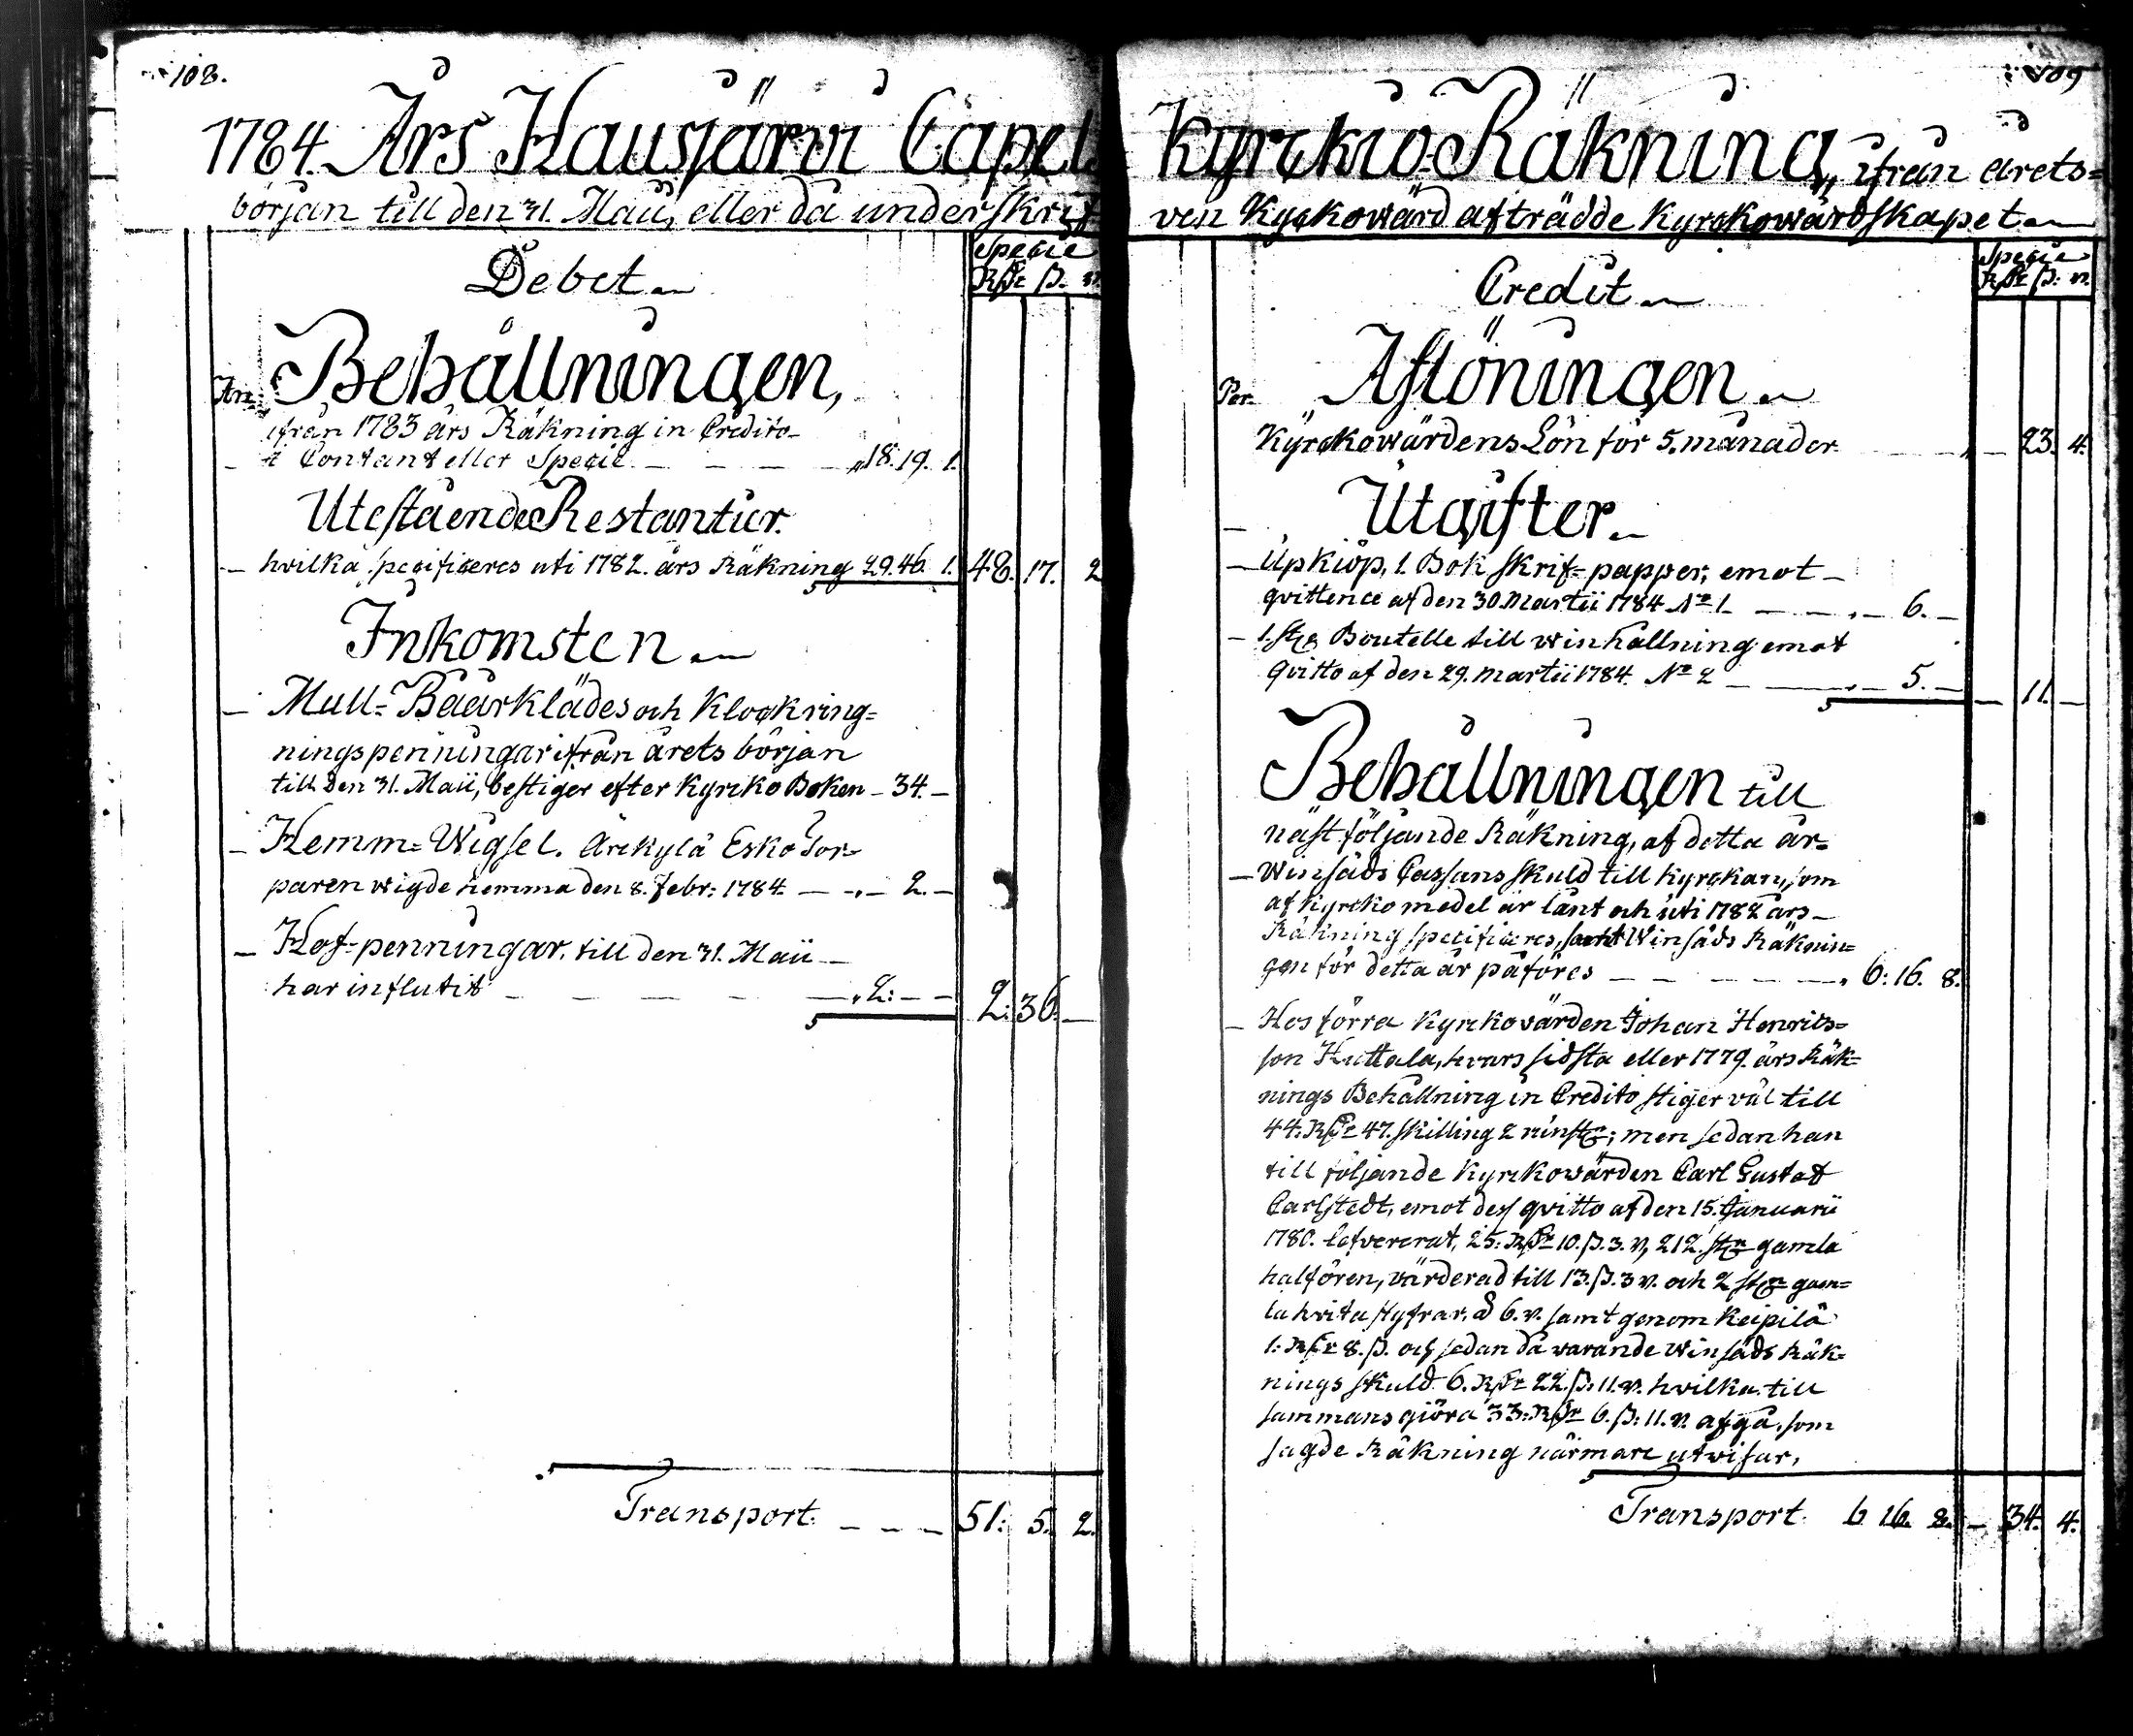 108.
1784. Års Hausjärvi Capels
början till den 31. Maii, eller då underskrif-
Debet
Specie
RSdr ß. rs
An Behållningen,
ifrån 1783 års Räkning in Credito
i Contant eller Specie — — — — " 18. 19. 1.
Utestående Restantier.
— hvilka specificeres uti 1782. års Räkning 29. 46 1. 48. 17. 2
Inkomsten
— Mull- Båårklädes och Klockring-
ningspenningar ifrån årets början
till den 31. Maii, bestiger efter Kyrcko Boken - 34. -
— Hemm- Wigsel. Årekylä Esko Tor-
paren wigde hemma den 8. Febr: 1784 — " — 2. —
— Hof-penningar. till den 31. Maii
har influtit — — — — — " 2: — — 2: 36. —
Transport. — — — 51: 5. 2.
109
Kyrckio-Räkning, ifrån årets=
ven Kyrkowärd afträdde Kyrckowärdskapet
Credit
Specie
RSdr ß: rs.
Per. Aflöningen
Kyrckowärdens Lön för 5. månader — 23. 4.
— Utgifter
— Upkiöp, 1. Bok Skrif-papper, emot
qvittence af den 30. Martii 1784 No 1 — — " — 6. —
— 1. St. Boutelle till winhållning emot
qvitto af den 29. Martii 1784. No 2 — — " — 5. — — 11. —
Behållningen till
näst följande Räkning, af detta är
— Winsäds Cassans skuld till Kyrckan, som
af Kyrcko medel är lånt och uti 1782 års
Räkning specificeres, samt Winsäds Räknin-
gen för detta år påföres — — — — — " 6: 16. 8.
— Hos förra Kyrckovärden Johan Henrics-
son Huttala, hvars sidsta eller 1779. års Räk-
nings Behållning in Credito stiger väl till
44: RSdr 47. skilling 2 runst.; men sedan han
till följande Kyrckowärden Carl Gustaf
Carlstedt, emot dess qvitto af den 15. Januarii
1780. lefvererat, 25: RSdr 10. ß. 3. rs, 212. st. gamla
halfören, värderad till 13. ß. 3 rs. och 2 st. gam-
la hvita styfrar. à 6. rs. samt genom Keipilä
1: RSdr 8. ß. och sedan då warande Winsäds Räk-
nings skuld 6. RSdr 22. ß. 11. rs. hvilka till
sammans giöra 33: RSdr 6. ß: 11. rs. afgå, som
sagde Räkning närmare utvisar,
Transport 6 16. 8. — 34. 4.